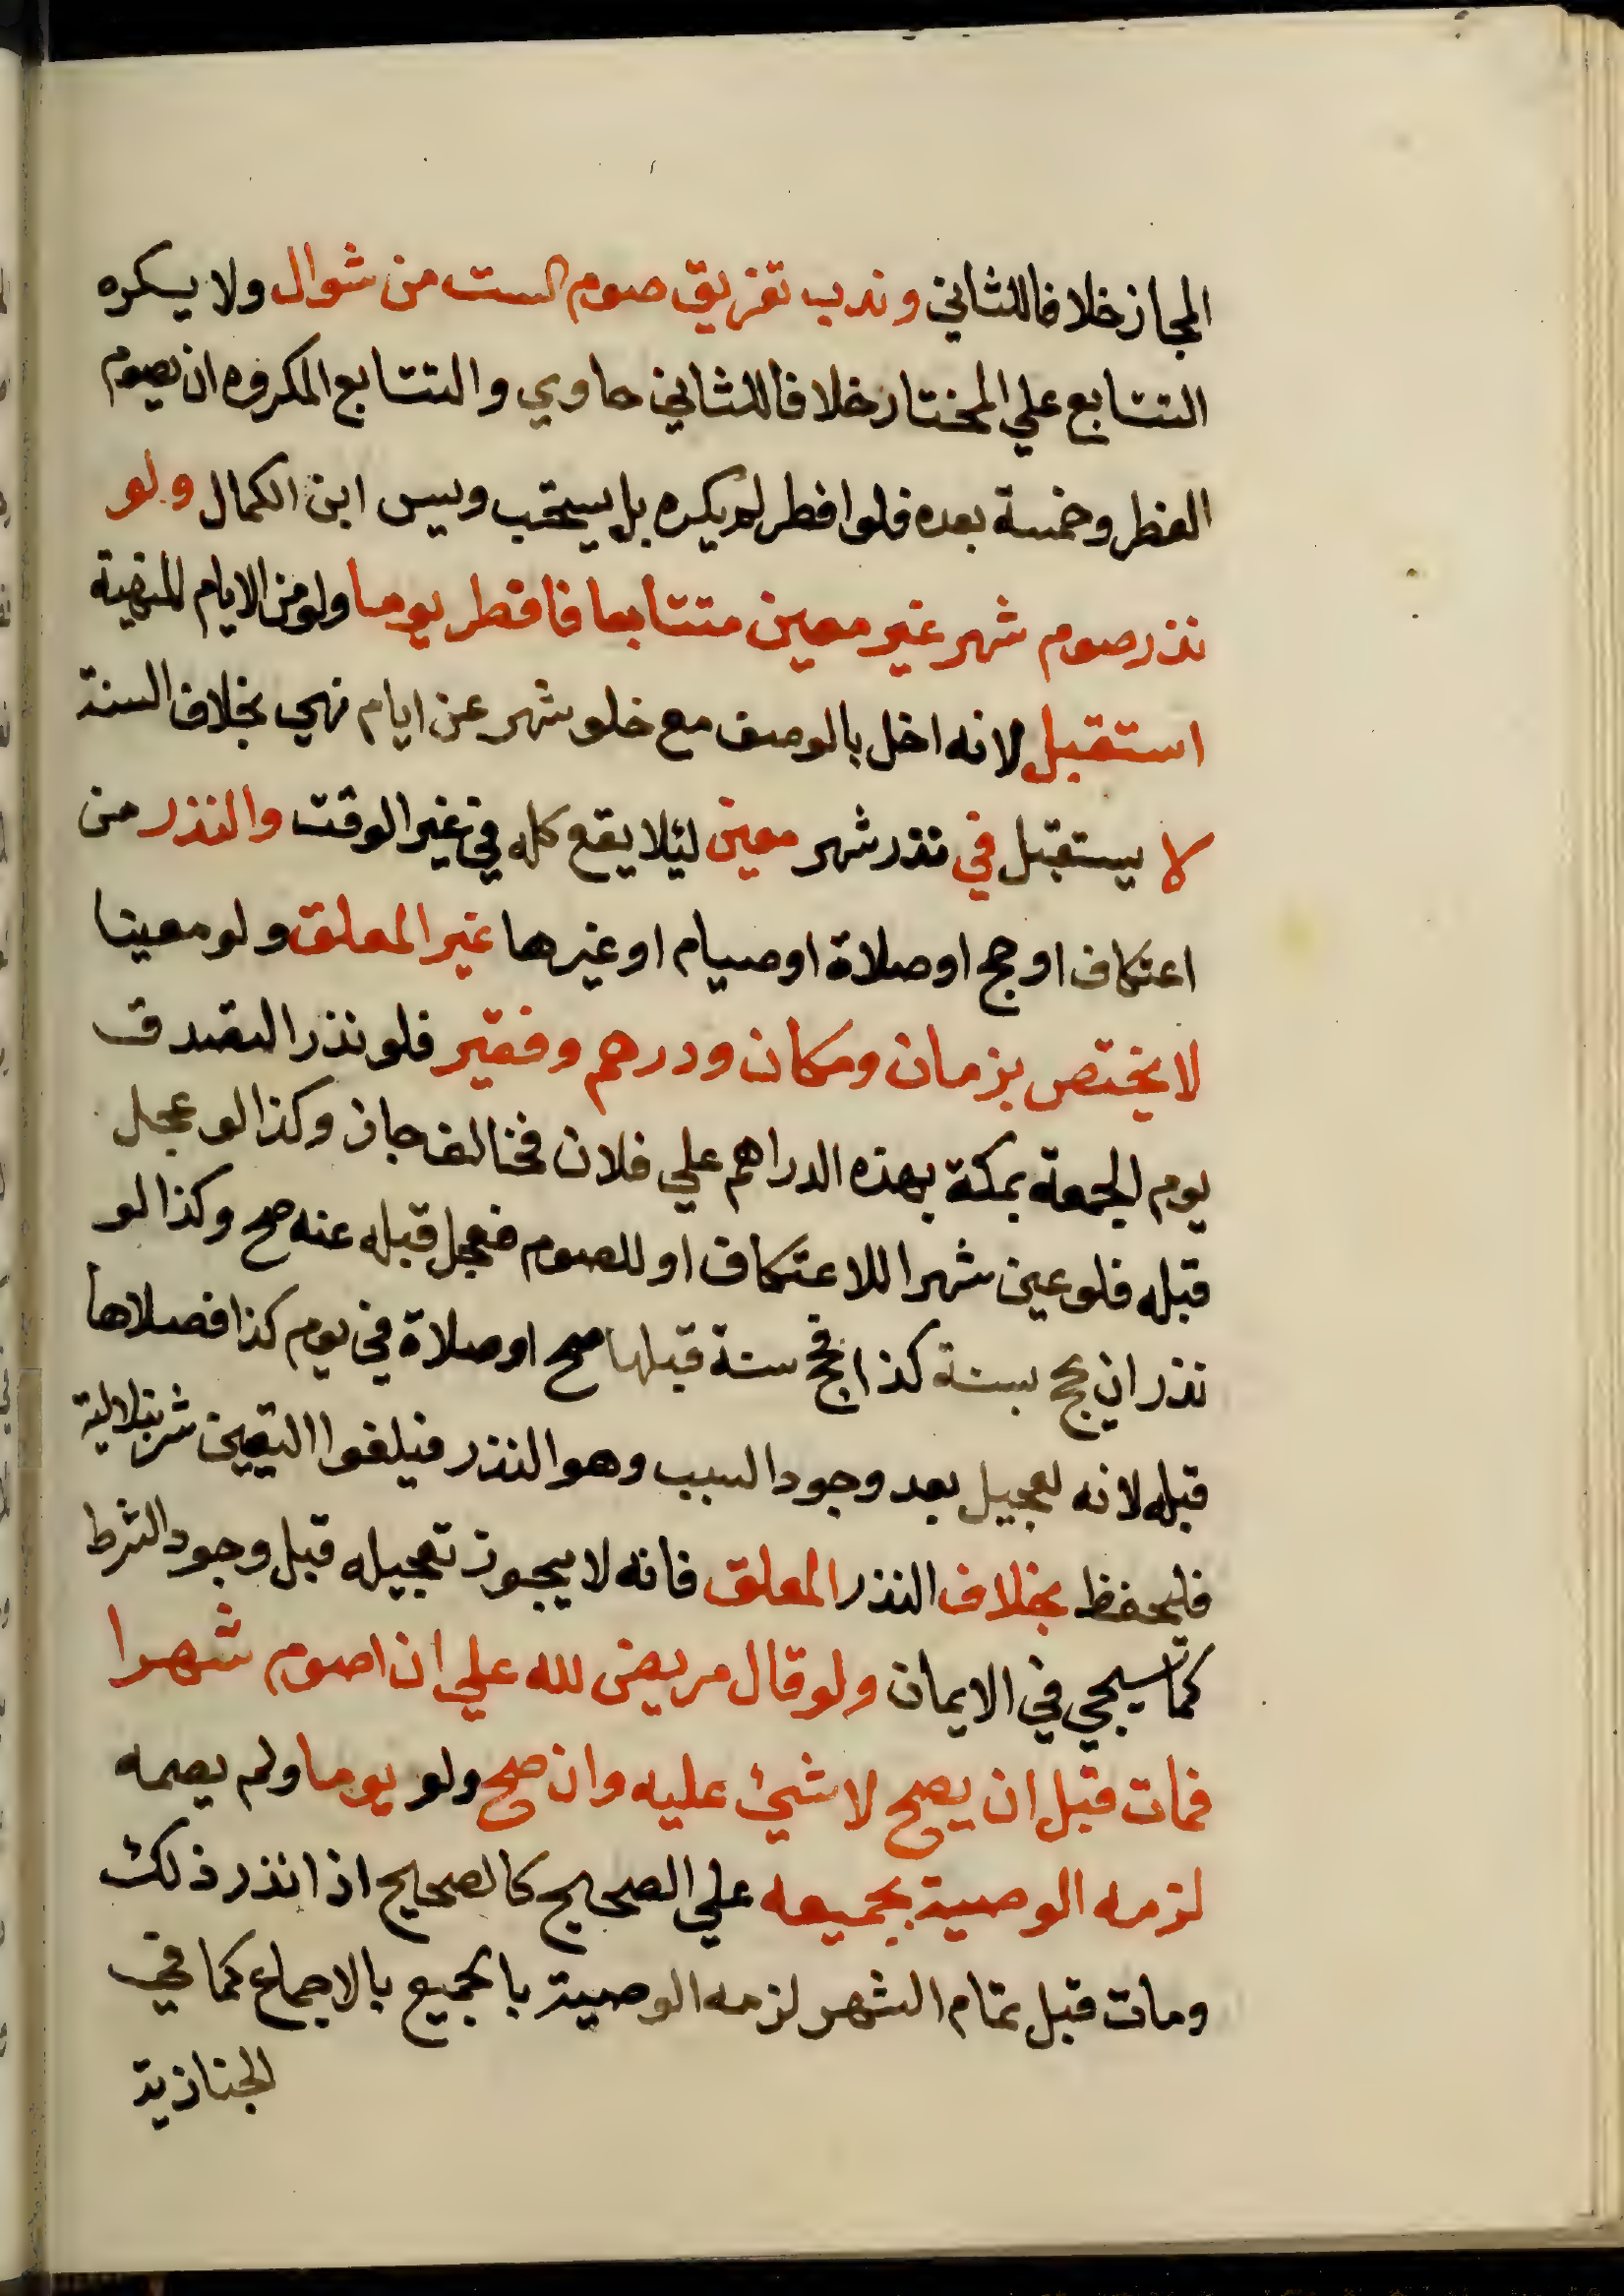 المجاز خلافا للثاني وندب تفريق صوم الست من شوال ولا يكره
التتابع علي المختار خلافا للثاني حاوي والتتابع المكروه ان يصوم
الفطر وخمسة بعده فلو افطر لم يكره بل يستحب ويسن ابن الكمال ولو
نذر صوم شهر غير معين متتابعا فافطر يوما ولو من الايام المنهية
استقبل لانه اخل بالوصف مع خلو شهر عن ايام نهي بخلاف السنة
لا يستقبل في نذر شهر معين ليلا يقع كله في غير الوقت والنذر من
اعتكاف او حج او صلاة او صيام او غيرها غير المعلق ولو معينا
لا يختص بزمان ومكان ودرهم وفقير فلو نذر التصدق
يوم الجمعة بمكة بهذه الدراهم علي فلان فخالف جاز وكذا لو عجل
قبله فلو عين شهرا للاعتكاف او للصوم فعجل قبله عنه صح وكذا لو
نذر ان يحج بسنة كذا فحج سنة قبلها صح او صلاة في يوم كذا فصلاها
قبله لانه تعجيل بعد وجود السبب وهو النذر فيلغوا التعيين شرنبلالية
فليحفظ بخلاف النذر المعلق فانه لا يجوز تعجيله قبل وجود الشرط
كما سيجي في الايمان ولو قال مريض لله علي ان اصوم شهرا
فمات قبل ان يصح لا شيئ عليه وان صح ولو يوما ولم يصمه
لزمه الوصية بجميعه علي الصحيح كالصحيح اذا نذر ذلك
ومات قبل تمام الشهر لزمه الوصية بالجميع بالاجماع كما في
الجنازية